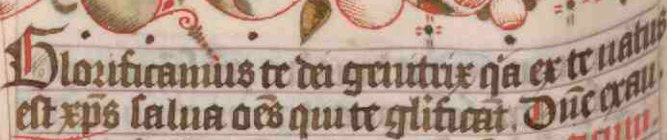 Glorificamus te dei genitrix q̃a ex te natus
est xp̃s salua oẽs qui te glificãt. Dñe exau